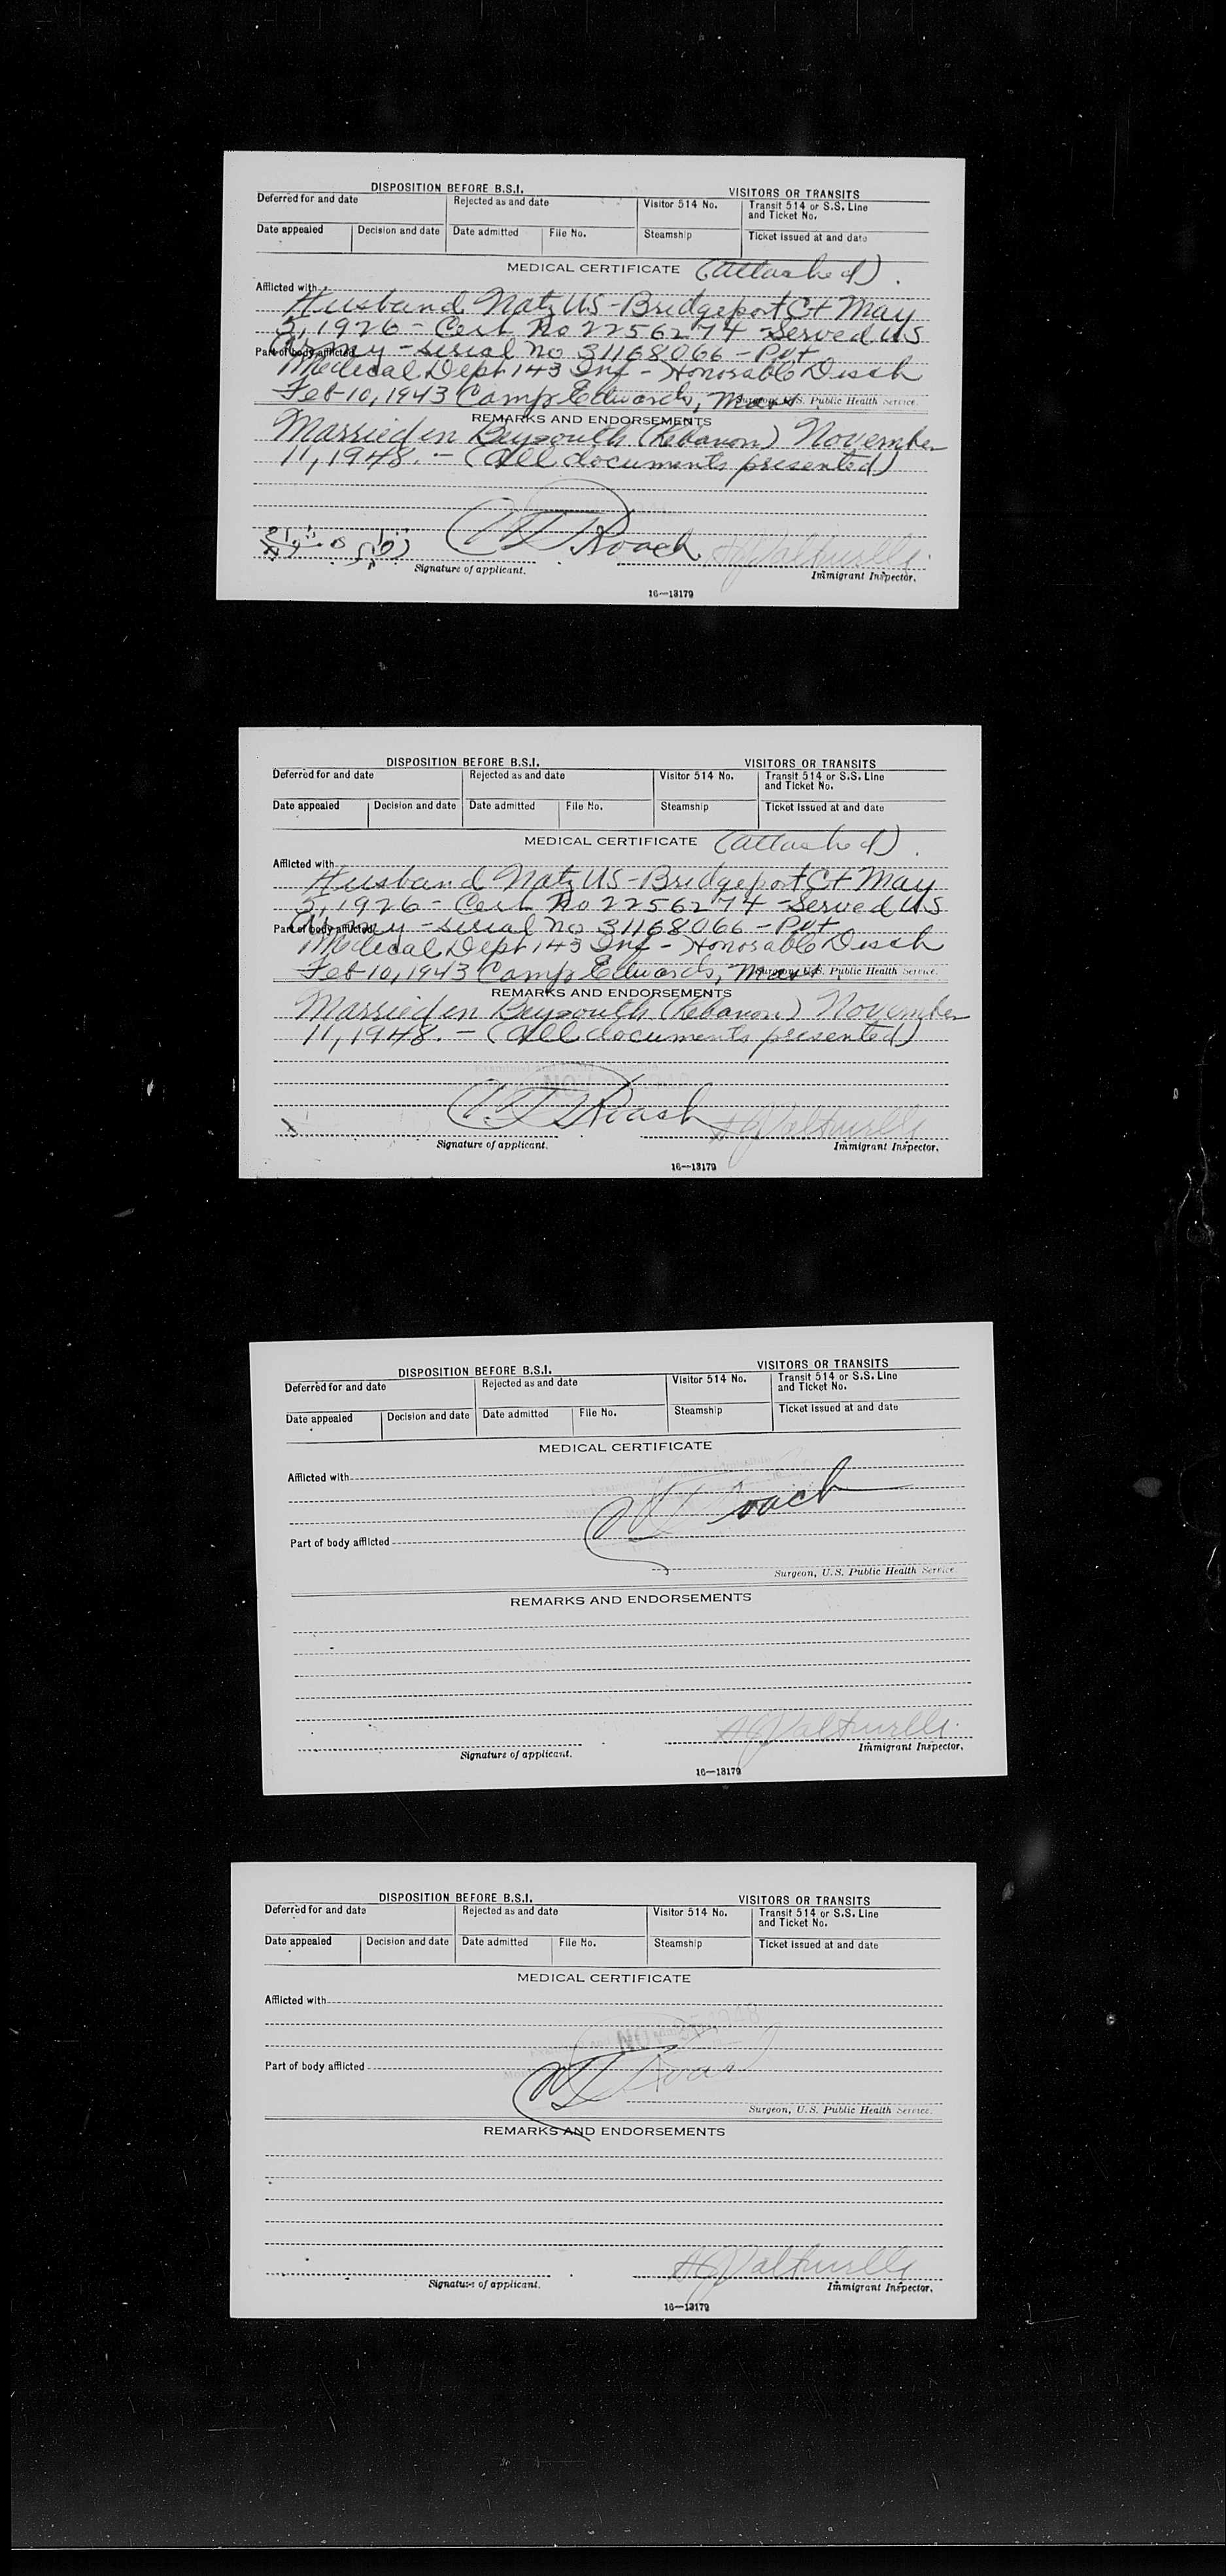 DISPOSITION BEFORE B.S.I. VISITORS OR TRANSITS
Deferred for and date Rejected as and date Visitor 514 No. Transit 514 or S.S. Line and Ticket No.
Date appealed Decision and date Date admitted File No. Steamship Ticket issued at and date
MEDICAL CERTIFICATE (attached).
Afflicted with
Husband Natz US - Bridgeport Ct May
5, 1926 - Cert No 2256274 - Served US
Part of body afflicted
Army - serial no 31168066 - Pvt
Medical Dept 143 Inf - Honorable Disch
Feb 10, 1943 Camp Edwards, Mass.
Surgeon, U.S. Public Health Service.
REMARKS AND ENDORSEMENTS
Married in Beyrouth (Lebanon) November
11, 1948. - (All documents presented)
Roach
Signature of applicant. Immigrant Inspector.
16—13179
DISPOSITION BEFORE B.S.I. VISITORS OR TRANSITS
Deferred for and date Rejected as and date Visitor 514 No. Transit 514 or S.S. Line and Ticket No.
Date appealed Decision and date Date admitted File No. Steamship Ticket issued at and date
MEDICAL CERTIFICATE (attached).
Afflicted with
Husband Natz US - Bridgeport Ct May
5, 1926 - Cert No 2256274 - Served US
Part of body afflicted
Army - serial no 31168066 - Pvt
Medical Dept 143 Inf - Honorable Disch
Feb 10, 1943 Camp Edwards, Mass
Surgeon, U.S. Public Health Service.
REMARKS AND ENDORSEMENTS
Married in Beyrouth (Lebanon) November
11, 1948. - (All documents presented)
Roach
Signature of applicant. Immigrant Inspector.
16—13179
DISPOSITION BEFORE B.S.I. VISITORS OR TRANSITS
Deferred for and date Rejected as and date Visitor 514 No. Transit 514 or S.S. Line and Ticket No.
Date appealed Decision and date Date admitted File No. Steamship Ticket issued at and date
MEDICAL CERTIFICATE
Afflicted with
Roach
Part of body afflicted
Surgeon, U.S. Public Health Service.
REMARKS AND ENDORSEMENTS
Signature of applicant. Immigrant Inspector.
16—13179
DISPOSITION BEFORE B.S.I. VISITORS OR TRANSITS
Deferred for and date Rejected as and date Visitor 514 No. Transit 514 or S.S. Line and Ticket No.
Date appealed Decision and date Date admitted File No. Steamship Ticket issued at and date
MEDICAL CERTIFICATE
Afflicted with
NOV
Part of body afflicted
Surgeon, U.S. Public Health Service.
REMARKS AND ENDORSEMENTS
Signature of applicant. Immigrant Inspector.
16—13179